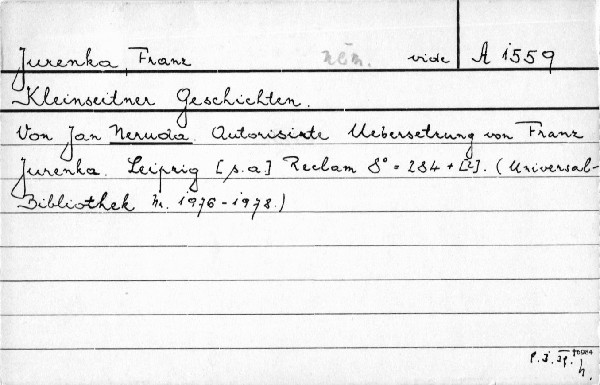 Jurenka, Franz něm. vide A 1559
Kleinseitner Geschichten.
Von Jan Neruda. Autorisirte Uebersetzung von Franz
Jurenka. Leipzig [s.a.] Reclam 8° = 284 + [2]. (Universal-
Bibliothek Nr. 1976-1978.)